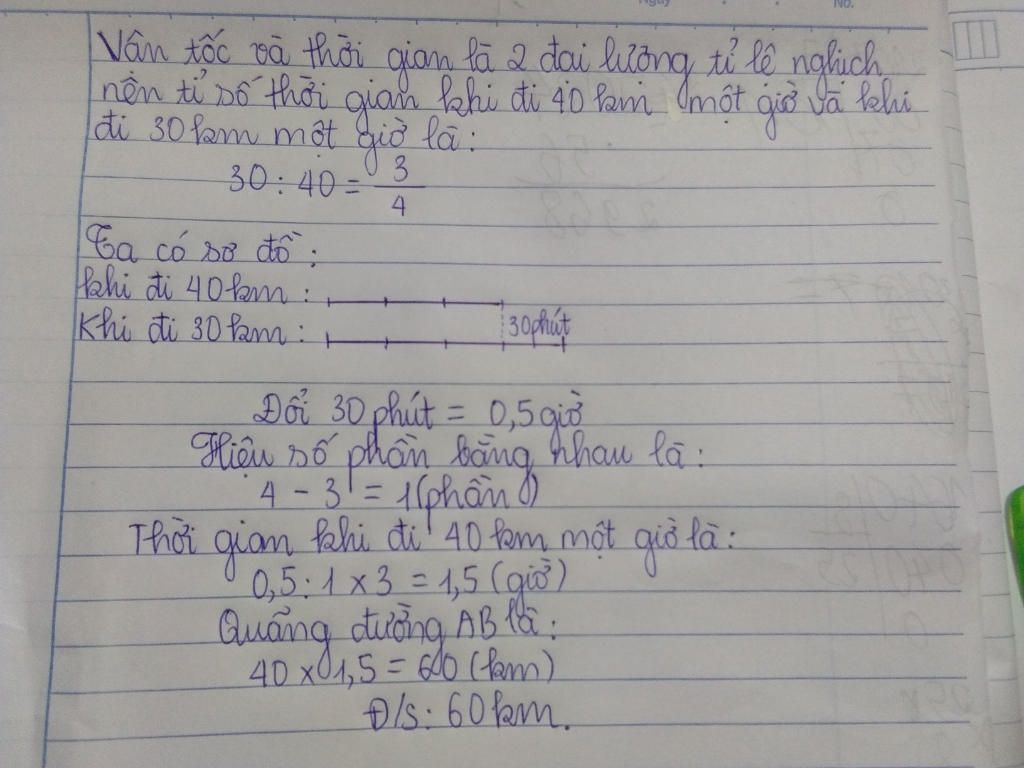 Ngày
No.
Vân tốc và thời gian là 2 đai lương tỉ lê nghich
nên tỉ số thời gian khi đi 40 km một giờ và khi
đi 30 km một giờ là:
30 : 40 = 3/4
Ta có sơ đồ:
khi đi 40 km :
Khi đi 30 km :
30 phút
Đổi 30 phút = 0,5 giờ
Hiệu số phần bằng nhau là:
4 - 3 = 1 (phần)
Thời gian khi đi 40 km một giờ là:
0,5 : 1 x 3 = 1,5 (giờ)
Quãng đường AB là:
40 x 1,5 = 60 (km)
Đ/s: 60 km.